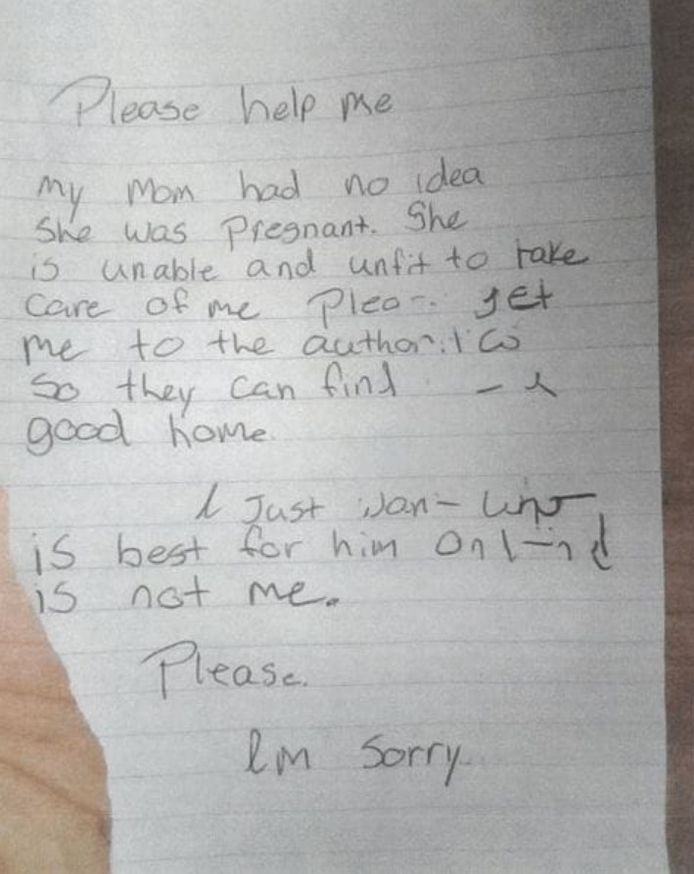 Please help me
my Mom had no idea
She was Pregnant. She
is unable and unfit to take
care of me get
me to the
So they can find
good home.
I Just
is best for him
is not me.
Please.
Im Sorry.